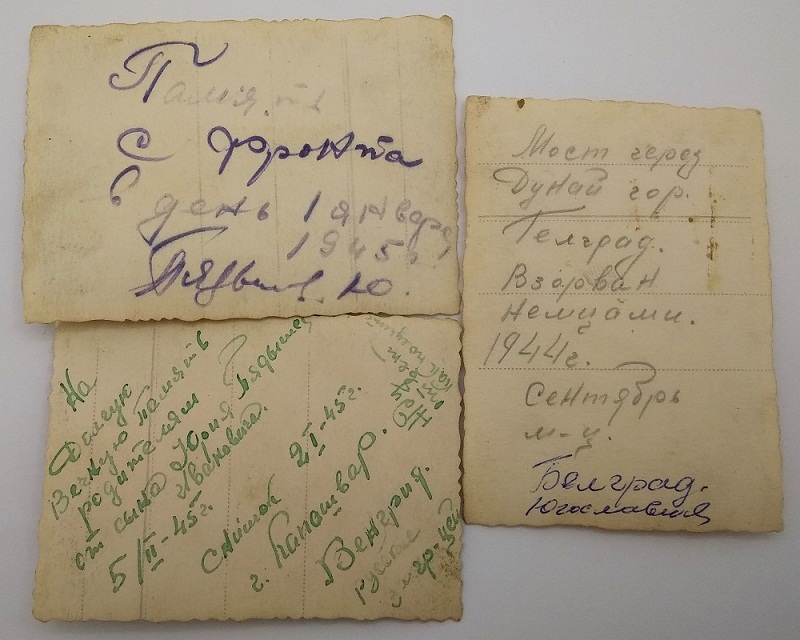 Память
с фронта
в день 1 января
1945 г.
Пядышев Ю.
Мост через
Дунай гор.
Гелград.
Взорван
немцами.
1944 г.
Сентябрь
м-ц.
Белград.
Югославия
На
Долгую
Вечную память
родителям Пядышев
от сына Юрия
Ивановича.
5/II-45 г.
Снимок 2/I-45 г.
г. Капошвар.
Венгрия.
Жду
ответ